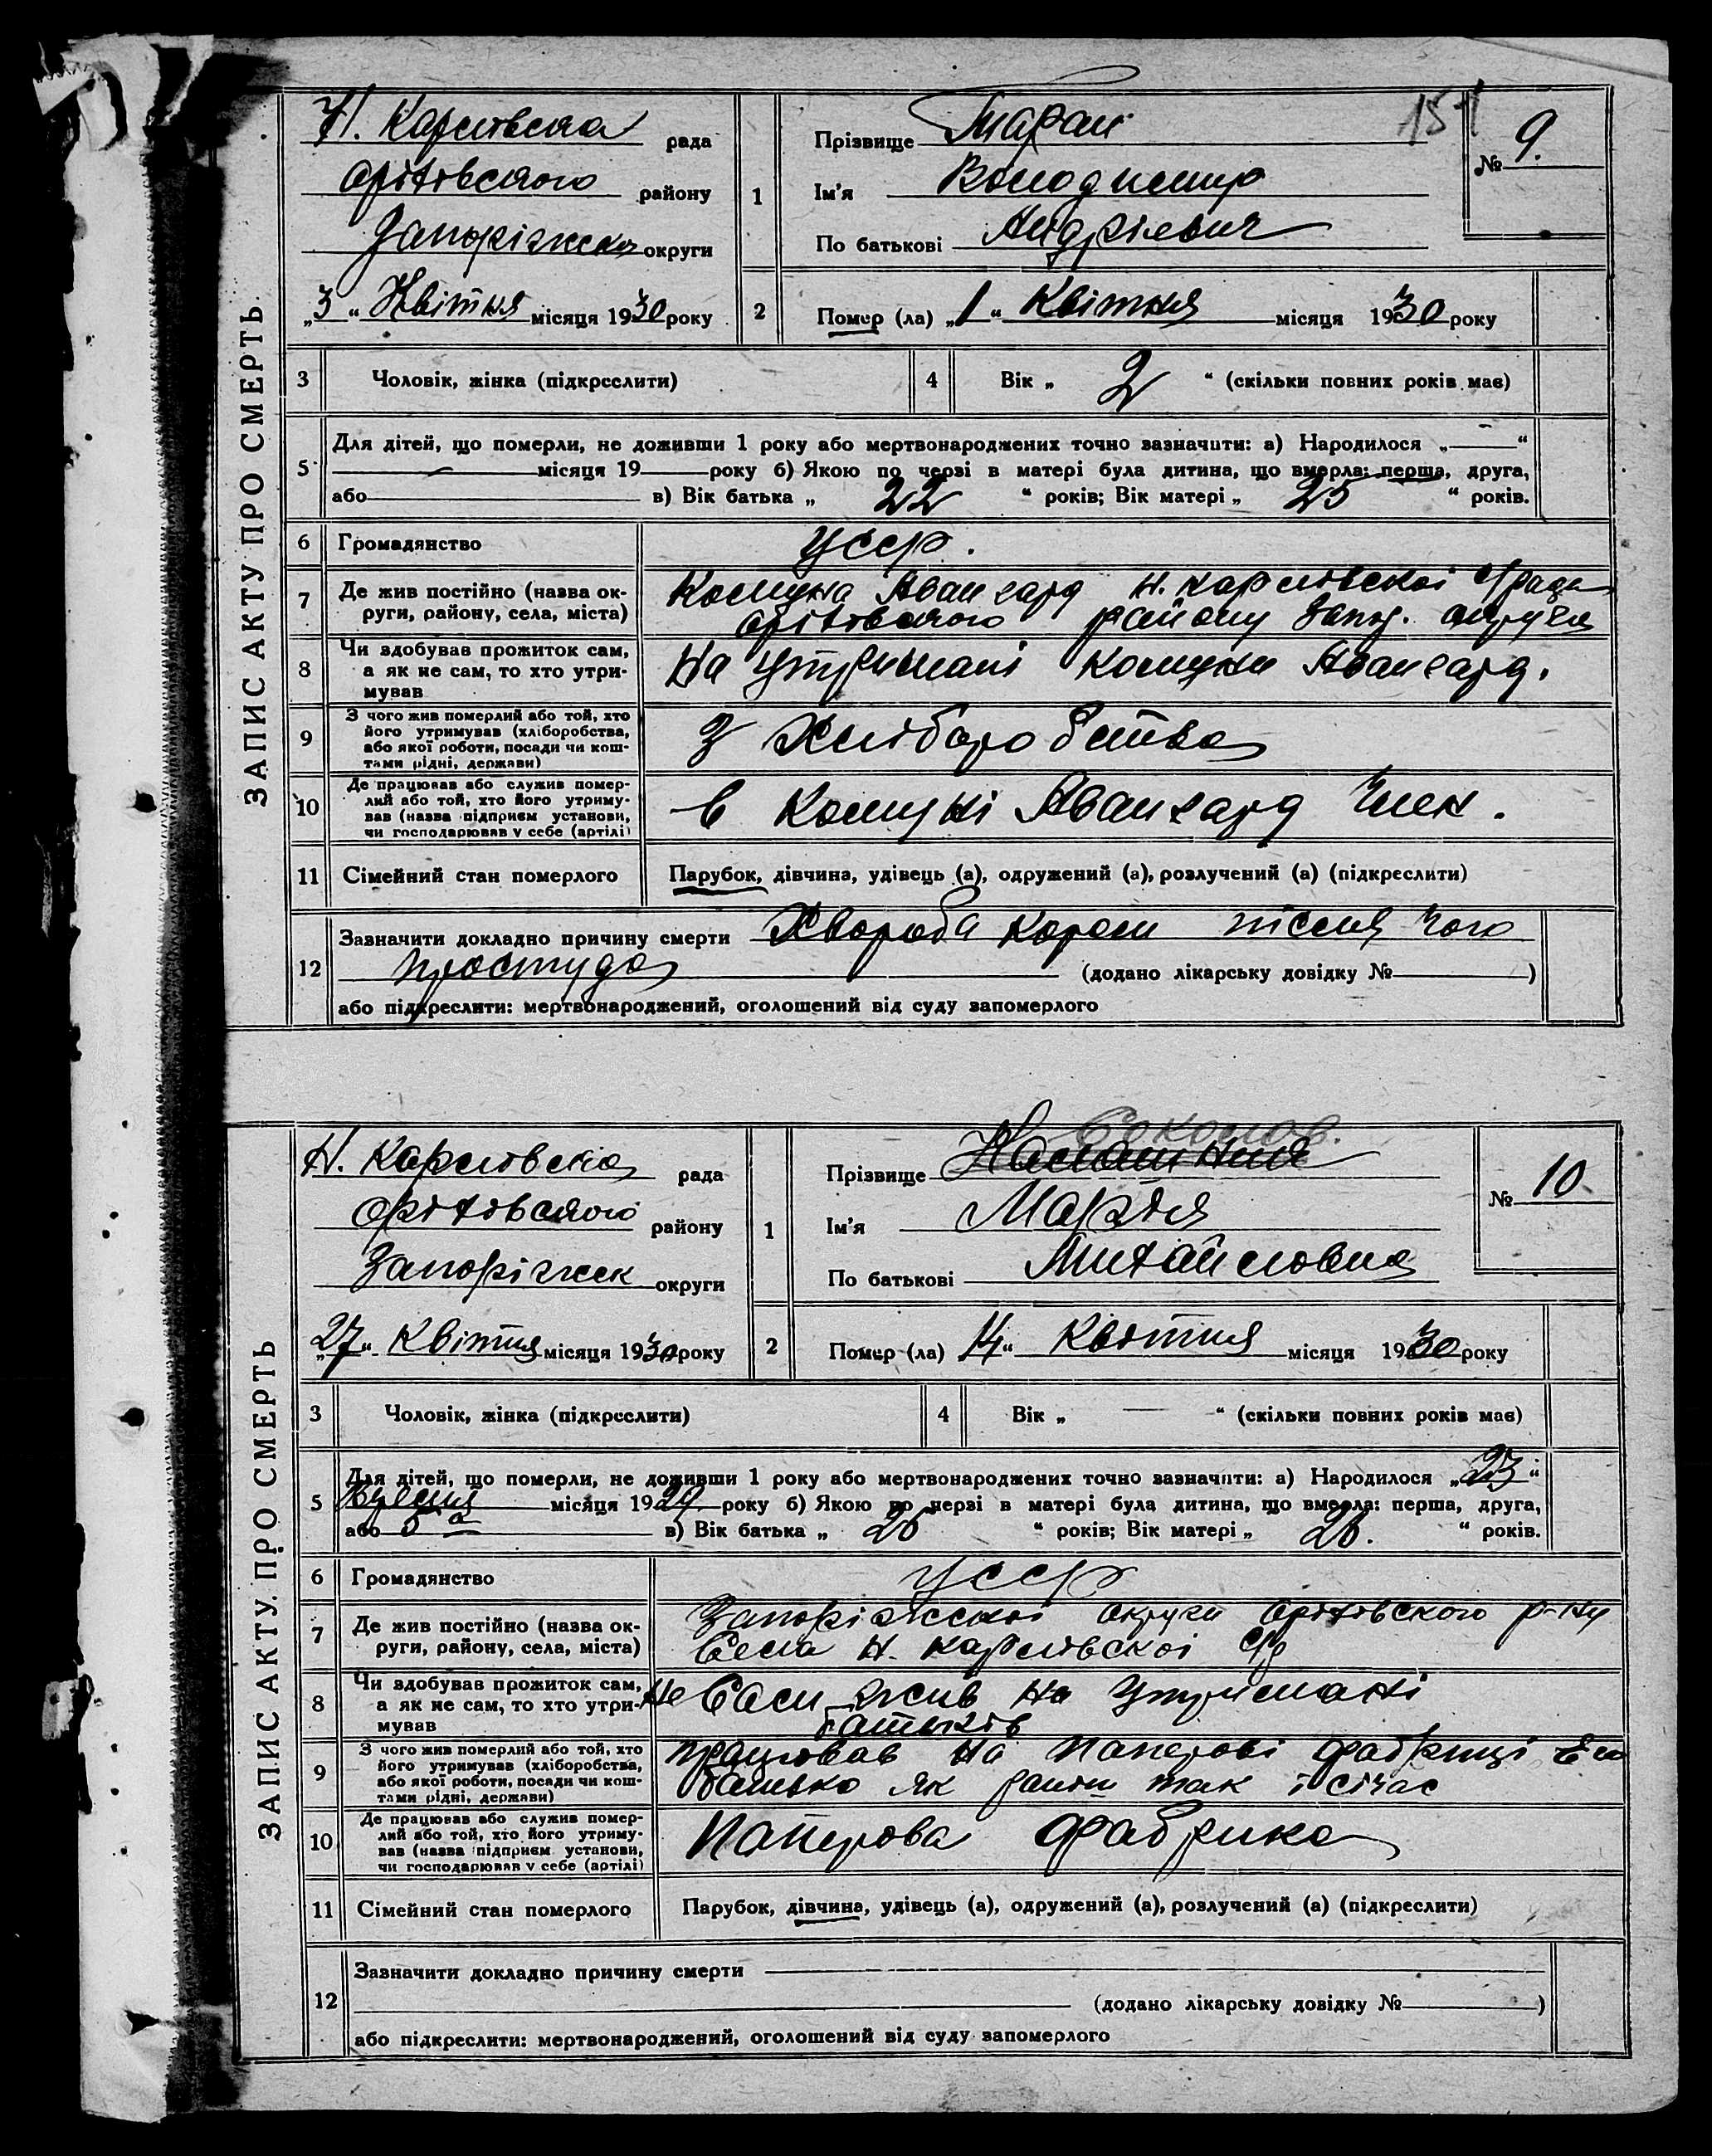 ЗАПИС АКТУ ПРО СМЕРТЬ
Н. Карловска рада
Оріхівського району
Запоріжско округи
„3“ Квітня місяця 1930 року
1
Прізвище Таран
Ім'я Володимир
По батькові Андрієвич
151
№ 9.
2 Помер (ла) „1“ Квітня місяця 1930 року
3 Чоловік, жінка (підкреслити)
4 Вік „ 2 “ (скільки повних років має)
5 Для дітей, що померли, не доживши 1 року або мертвонароджених точно зазначити: а) Народилося „ “
місяця 19 року б) Якою по черзі в матері була дитина, що вмерла: перша, друга,
або в) Вік батька „ 22 “ років; Вік матері „ 25 “ років.
6 Громадянство УССР.
7 Де жив постійно (назва округи, району, села, міста)
Комуна Авангард Н. Карловскоі с/ради
Оріхівського району Запор. округи
8 Чи здобував прожиток сам,
а як не сам, то хто утри-
мував
На утримані комуни Авангард.
9 З чого жив померлий або той, хто
його утримував (хліборобства,
або якої роботи, посади чи кош-
тами рідні, держави)
З Хліборобства
10 Де працював або служив помер-
лий або той, хто його утриму-
вав (назва підприєм установи,
чи господарював у себе (артілі)
в Комуні Авангард Член.
11 Сімейний стан померлого Парубок, дівчина, удівець (а), одружений (а), розлучений (а) (підкреслити)
12 Зазначити докладно причину смерти Хвороба кором після чого
простуда (додано лікарську довідку № )
або підкреслити: мертвонароджений, оголошений від суду запомерлого
ЗАПИС АКТУ ПРО СМЕРТЬ
Н. Карловска рада
Оріхівського району
Запоріжск округи
„27“ Квітня місяця 1930 року
1
Соколов.
Прізвище
Ім'я Марія
По батькові Михайловна
№ 10
2 Помер (ла) „14“ Квітня місяця 1930 року
3 Чоловік, жінка (підкреслити)
4 Вік „ — “ (скільки повних років має)
5 Для дітей, що померли, не доживши 1 року або мертвонароджених точно зазначити: а) Народилося „23“
місяця 1929 року б) Якою по черзі в матері була дитина, що вмерла: перша, друга,
або 5а в) Вік батька „ 26 “ років; Вік матері „ 26. “ років.
6 Громадянство УССР
7 Де жив постійно (назва ок-
руги, району, села, міста)
Запоріжскоі округи Оріхівського р-ну
Села Н. Карловскоі с/р
8 Чи здобував прожиток сам,
а як не сам, то хто утри-
мував
Не Сам жив на утримані
батьків
9 З чого жив померлий або той, хто
його утримував (хліборобства,
або якої роботи, посади чи кош-
тами рідні, держави)
працював на паперові фабриці Его
батько як раніш так і січас
10 Де працював або служив помер-
лий або той, хто його утриму-
вав (назва підприєм установи,
чи господарював у себе (артілі)
Паперова фабрика
11 Сімейний стан померлого Парубок, дівчина, удівець (а), одружений (а), розлучений (а) (підкреслити)
12 Зазначити докладно причину смерти
(додано лікарську довідку № )
або підкреслити: мертвонароджений, оголошений від суду запомерлого